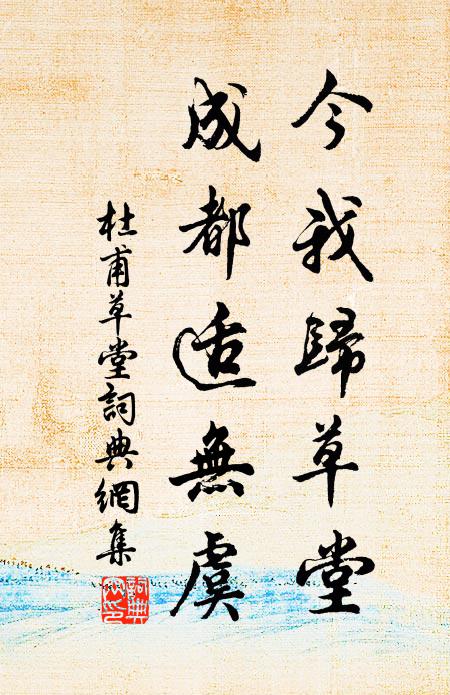 今我歸草堂
成都适無虞
杜甫草堂詞典網集